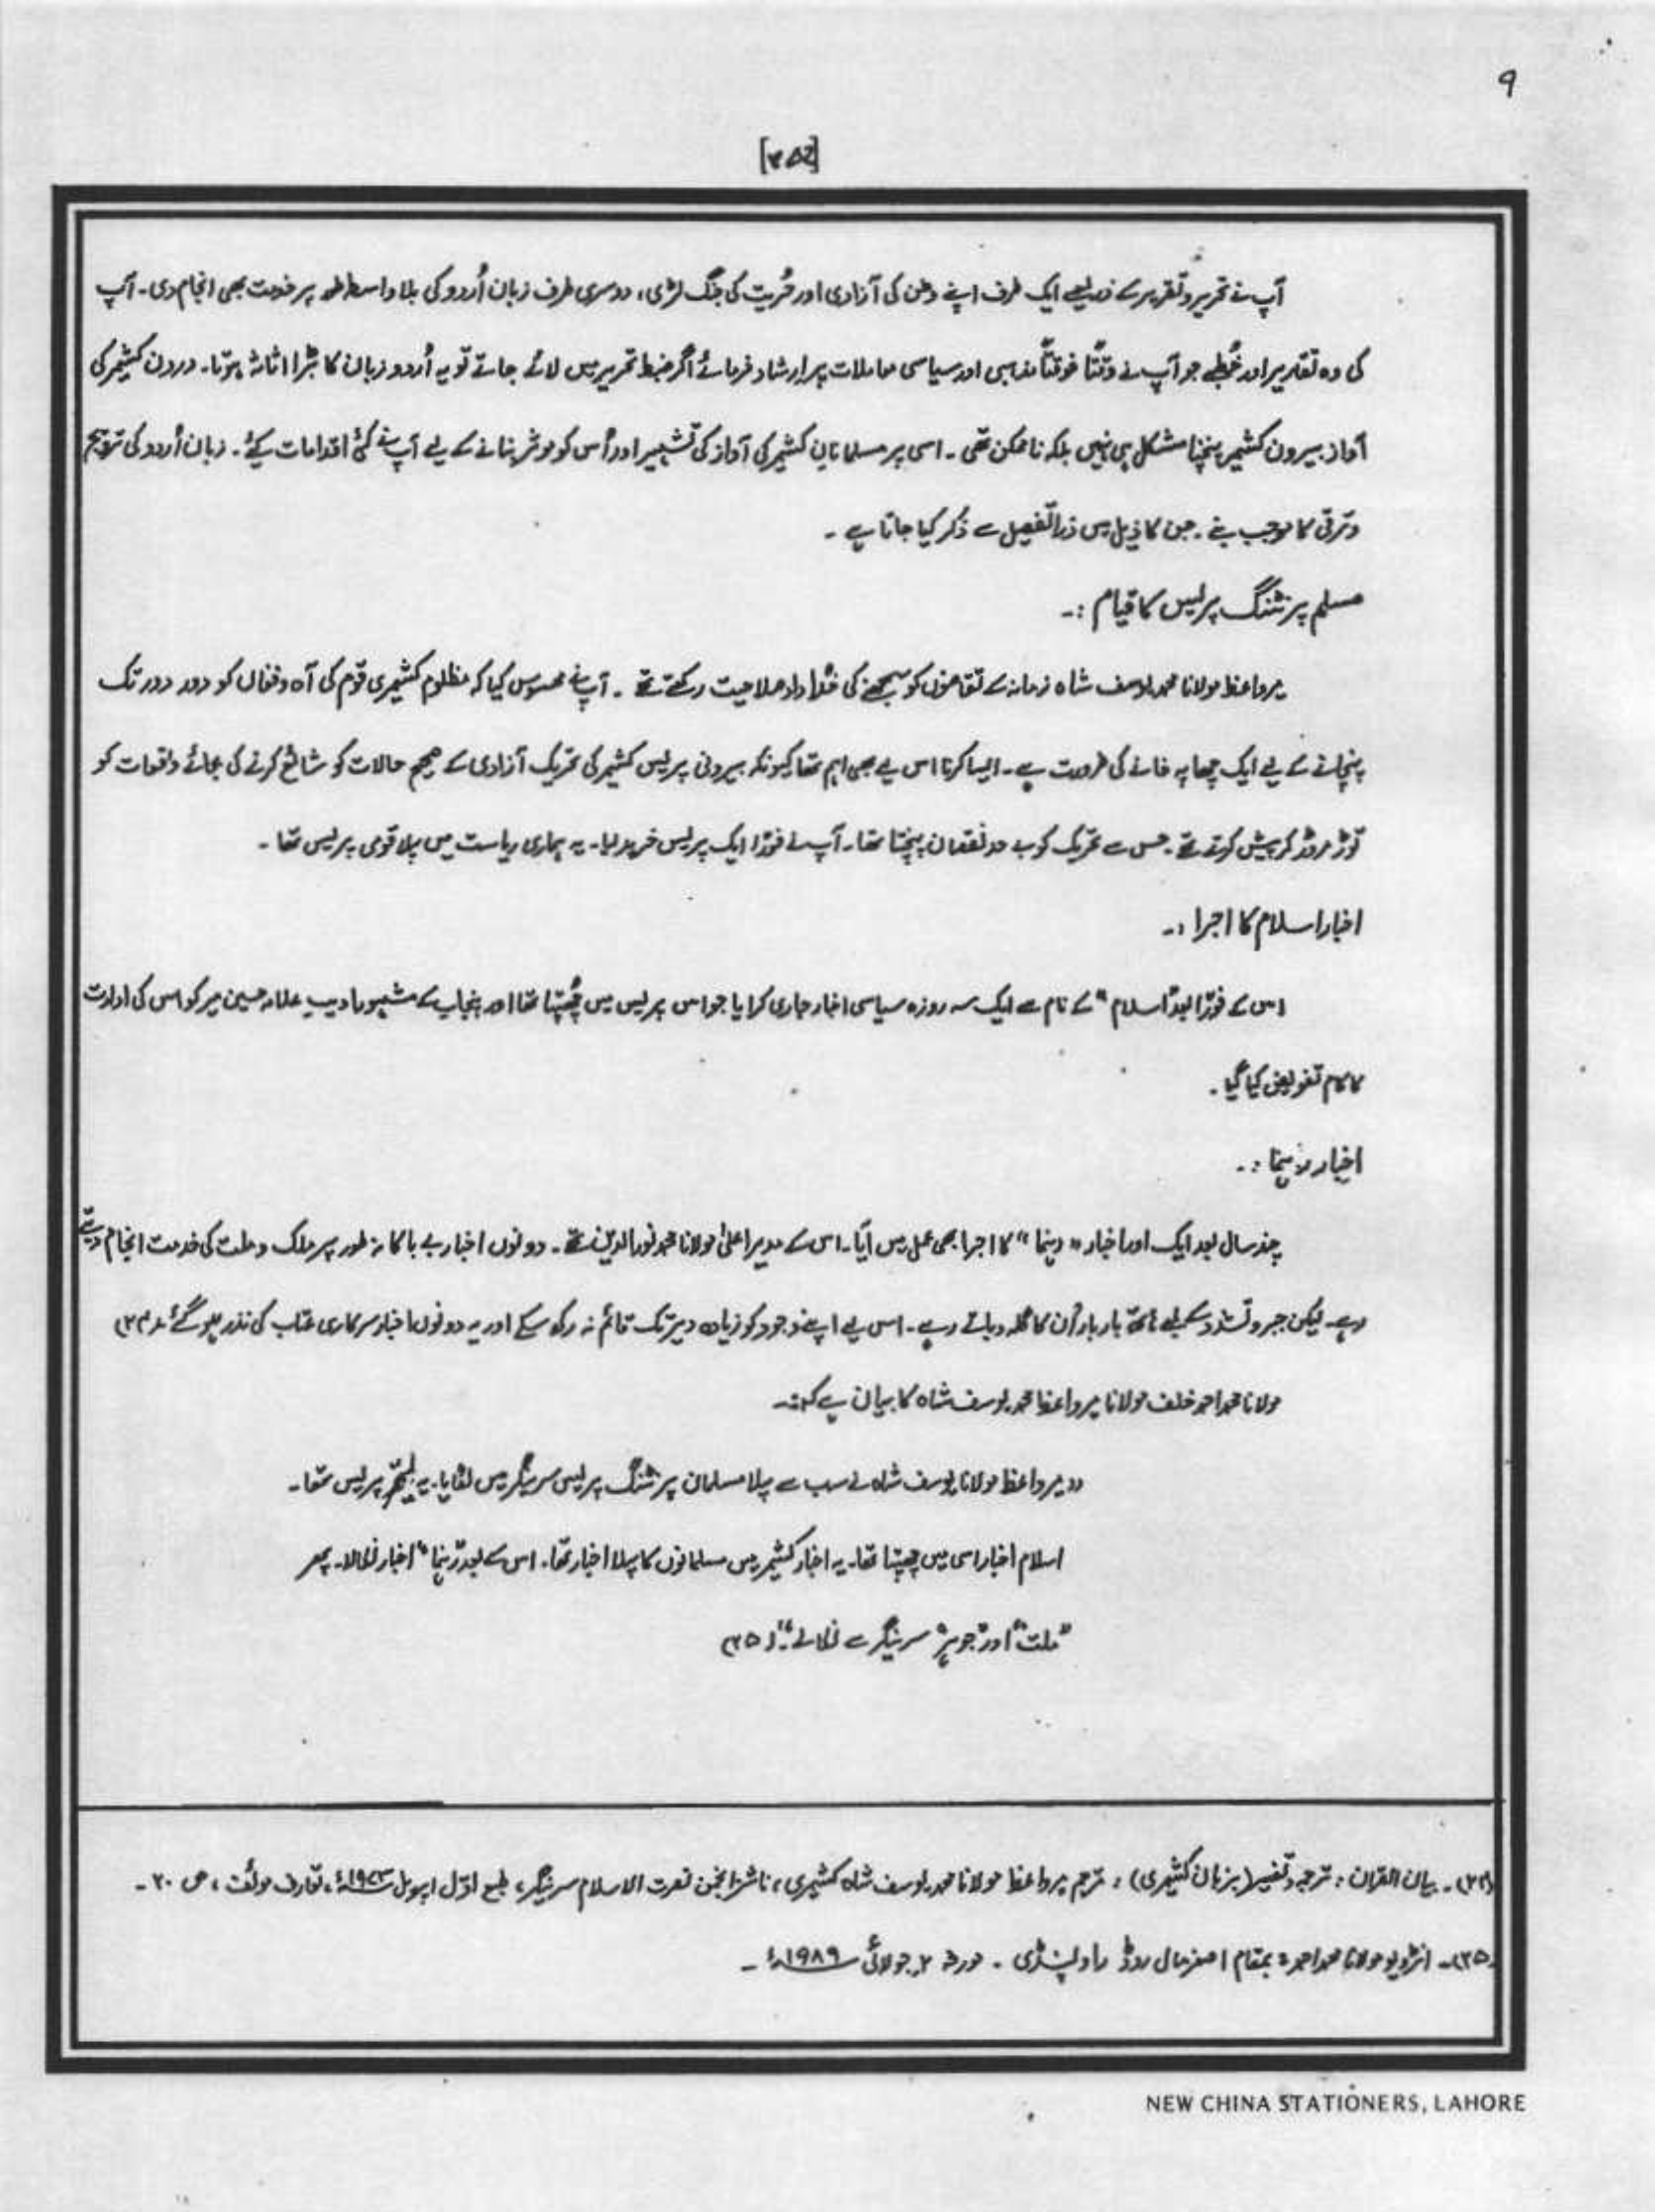 ۹
[۳۵۲]
آپ نے تحریر و تقریر کے ذریعے ایک طرف اپنے وطن کی آزادی اور حُریت کی جنگ لڑی، دوسری طرف زبان اُردو کی بلا واسطہ طور پر خدمت بھی انجام دی۔ آپ
کی وہ تقاریر اور خُطبے جو آپ نے وقتاً فوقتاً مذہبی اور سیاسی معاملات پر ارشاد فرمائے اگر ضبط تحریر میں لائے جاتے تو یہ اُردو زبان کا بڑا اثاثہ ہوتا۔ درون کشمیر کی
آواز بیرون کشمیر پہنچنا مشکل ہی نہیں بلکہ ناممکن تھی۔ اسی پر مسلمانانِ کشمیر کی آواز کی تشہیر اور اُس کو موثر بنانے کے لیے آپ نے کئی اقدامات کیے۔ زبان اُردو کی ترویج
و ترقی کا موجب بنے۔ جن کا ذیل میں ذرا تفصیل سے ذکر کیا جاتا ہے۔
مسلم پرنٹنگ پریس کا قیام :۔
میرواعظ مولانا محمد یوسف شاہ زمانہ کے تقاضوں کو سمجھنے کی خُدا داد صلاحیت رکھتے تھے۔ آپ نے محسوس کیا کہ مظلوم کشمیری قوم کی آہ و فغاں کو دور دور تک
پہنچانے کے لیے ایک چھاپہ خانے کی ضرورت ہے۔ ایسا کرنا اس لیے بھی اہم تھا کیونکہ بیرونی پریس کشمیر کی تحریک آزادی کے صحیح حالات کو شائع کرنے کی بجائے واقعات کو
توڑ مروڑ کر پیش کرتے تھے۔ جس سے تحریک کو بے حد نقصان پہنچتا تھا۔ آپ نے فورًا ایک پریس خرید لیا۔ یہ ہماری ریاست میں پہلا قومی پریس تھا۔
اخبار اسلام کا اجرا :۔
اس کے فورًا بعد "اسلام" کے نام سے ایک سہ روزہ سیاسی اخبار جاری کرایا جو اس پریس میں چُھپتا تھا اور پنجاب کے مشہور ادیب علامہ حسین میر کو اس کی ادارت
کا کام تفویض کیا گیا۔
اخبار رہنما :۔
چند سال بعد ایک اور اخبار "رہنما" کا اجرا بھی عمل میں آیا۔ اس کے مدیر اعلیٰ مولانا محمد نور الدین تھے۔ دونوں اخبار بے باکانہ طور پر ملک و ملت کی خدمت انجام دیتے
رہے۔ لیکن جبر و تشدد کے لمبے ہاتھ بار بار اُن کا گلہ دباتے رہے۔ اس لیے اپنے وجود کو زیادہ دیر تک قائم نہ رکھ سکے اور یہ دونوں اخبار سرکاری عتاب کی نذر ہو گئے۔ (۲۴)
مولانا محمد احمد خلف مولانا میرواعظ محمد یوسف شاہ کا بیان ہے کہ:۔
"میرواعظ مولانا یوسف شاہ نے سب سے پہلا مسلمان پرنٹنگ پریس سرینگر میں لگایا۔ یہ لیتھو پریس تھا۔
اسلام اخبار اسی میں چھپتا تھا۔ یہ اخبار کشمیر میں مسلمانوں کا پہلا اخبار تھا۔ اس کے بعد "رہنما" اخبار نکالا۔ پھر
"ملت" اور "جوہر" سرینگر سے نکالے۔" (۲۵)
(۲۴)۔ بیان القرآن : ترجمہ و تفسیر (بزبان کشمیری) : مترجم میرواعظ مولانا محمد یوسف شاہ کشمیری، ناشر انجمن نصرت الاسلام سرینگر، طبع اوّل اپریل ، تعارف مولّف، ص ۲۰۔
(۲۵)۔ انٹرویو مولانا محمد احمد : بمقام اصغر مال روڈ راولپنڈی۔ مورخہ ۲ جولائی ۱۹۸۹ء۔
NEW CHINA STATIONERS, LAHORE